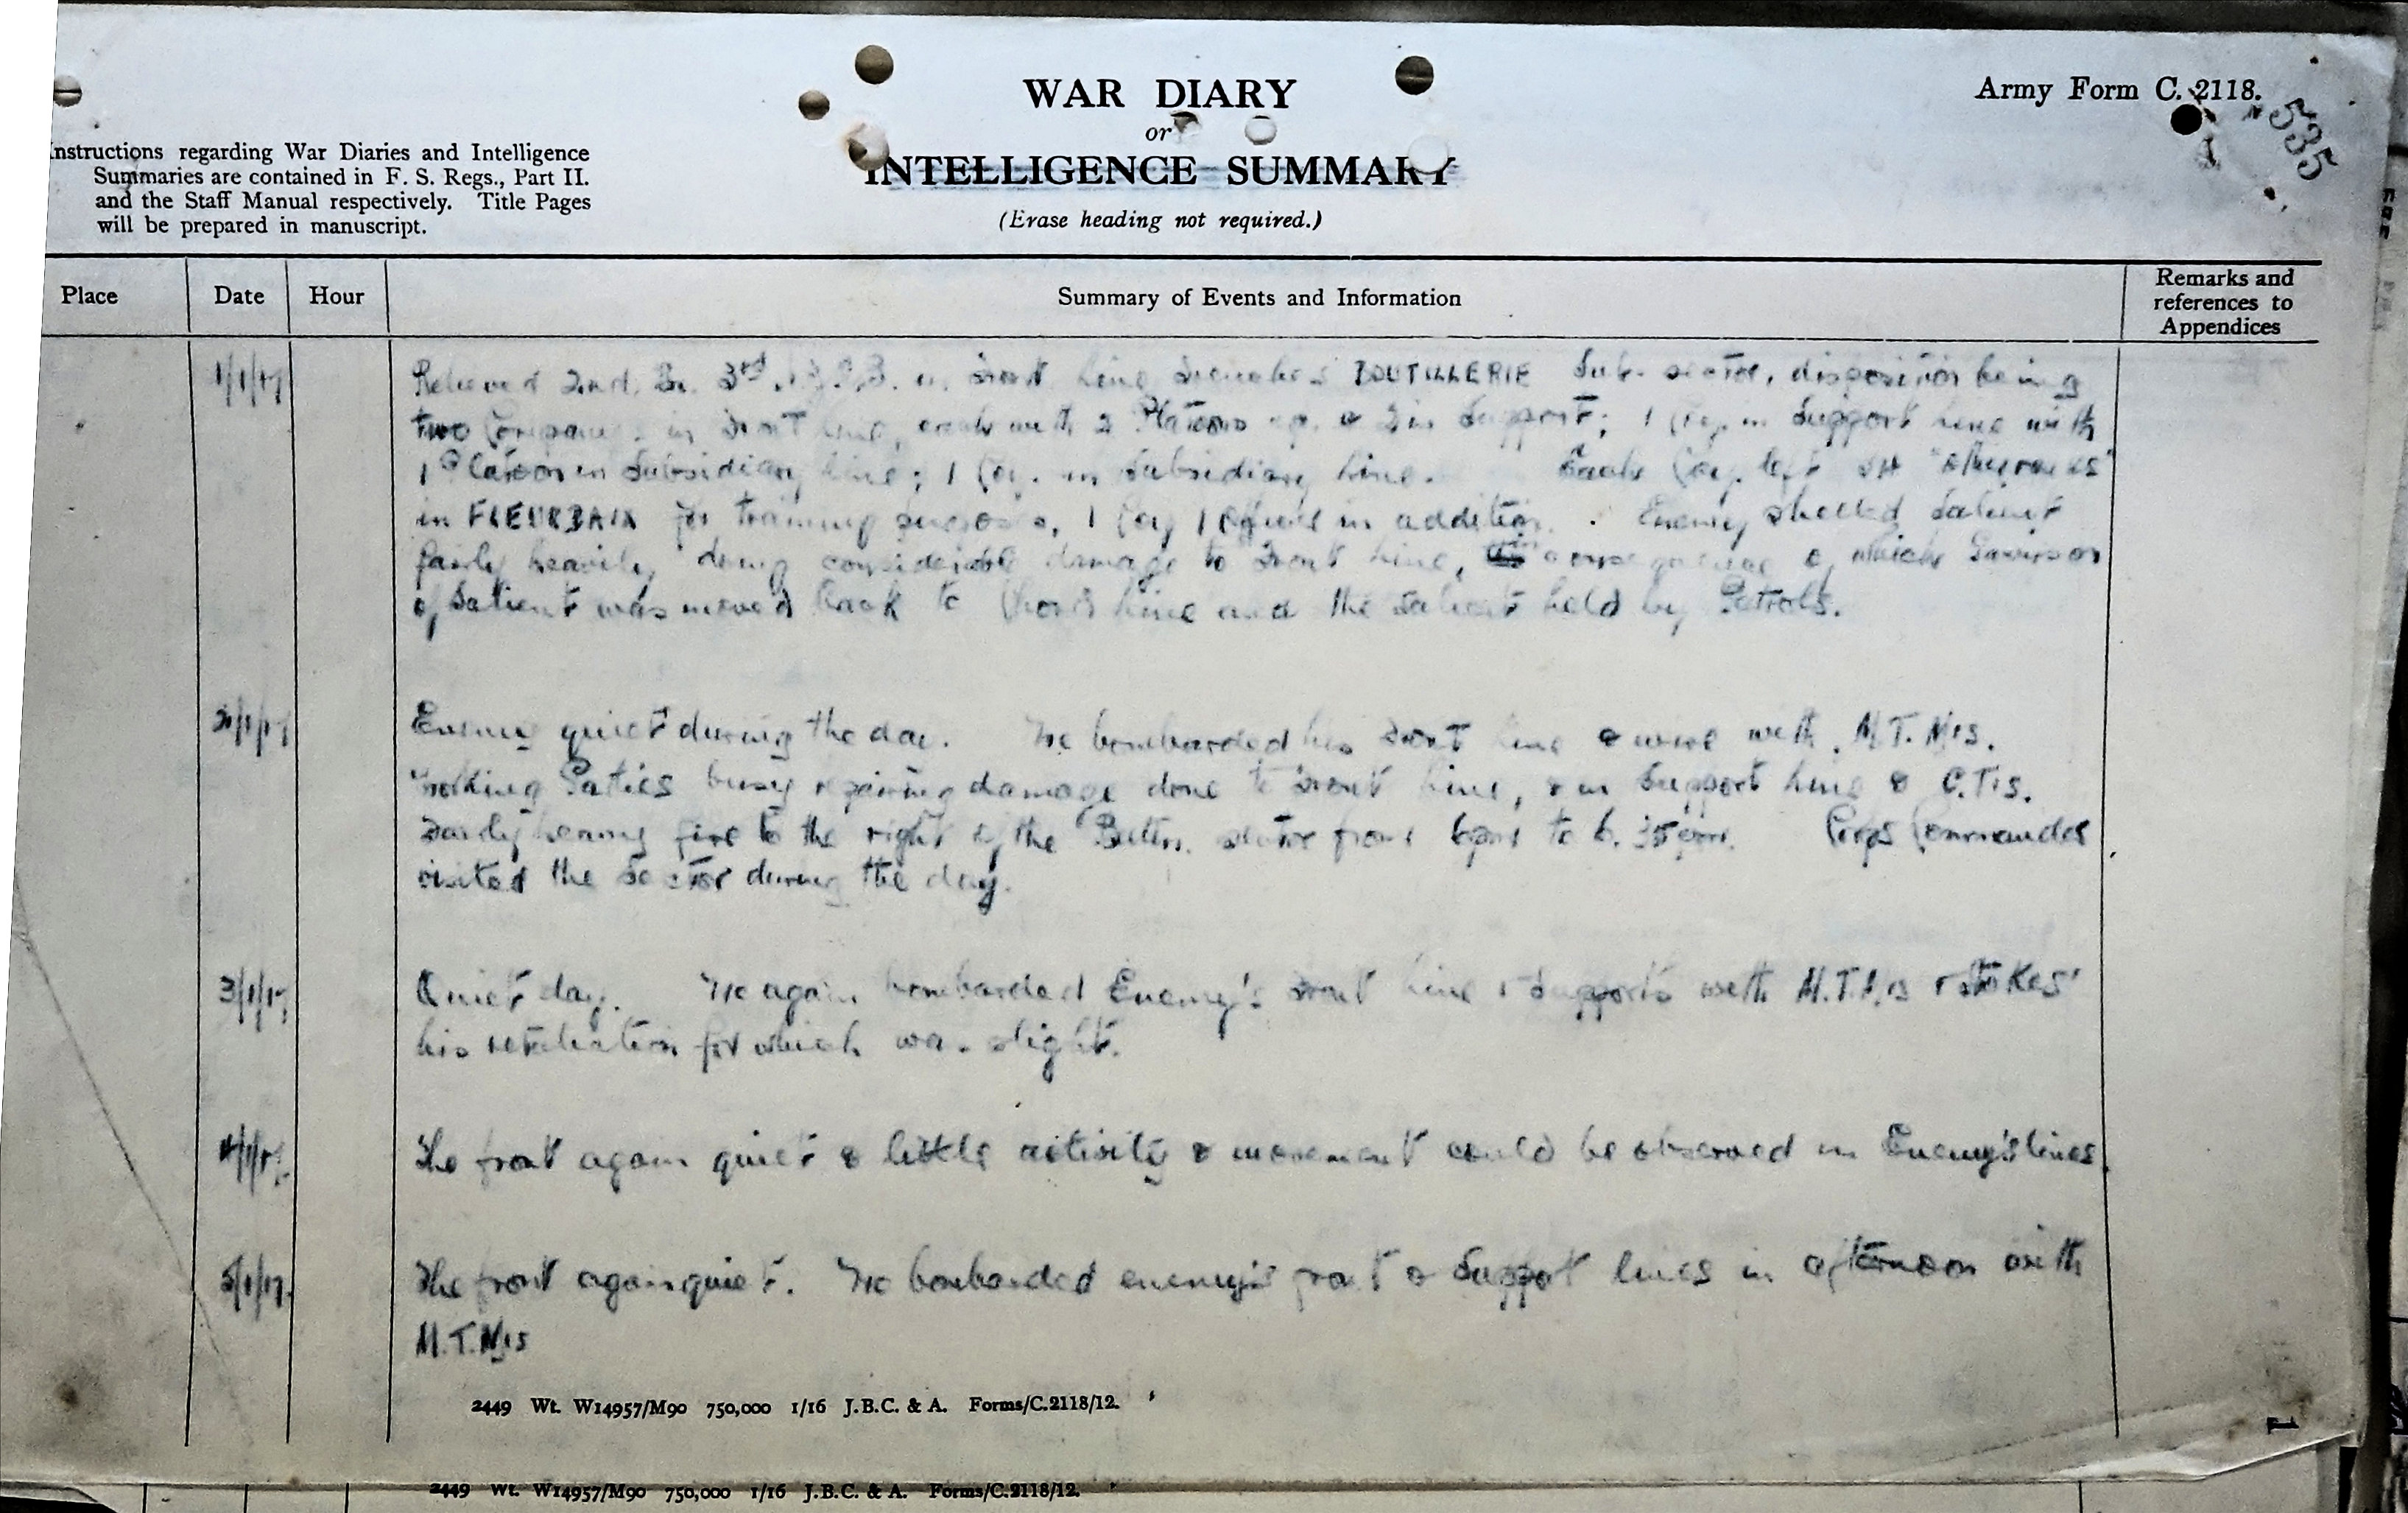 WAR DIARY
or
INTELLIGENCE SUMMARY
(Erase heading not required.)
Army Form C. 2118.
535
Instructions regarding War Diaries and Intelligence
Summaries are contained in F. S. Regs., Part II.
and the Staff Manual respectively. Title Pages
will be prepared in manuscript.
Place Date Hour Summary of Events and Information Remarks and references to Appendices
1/1/17 Relieved 2nd. Bn. 3rd. in Front Line Trenches BOUTILLERIE Sub-sector, disposition being
two Companies in Front Line, each with 2 Platoons up & 2 in Support; 1 Coy. in Support Line with
1 Platoon in Subsidiary Line; 1 Coy. in Subsidiary Line. Each Coy. left
in FLEURBAIX for training purposes, 1 Coy 1 Officer in addition. Enemy shelled Salient
fairly heavily doing considerable damage to Front Line, consequence of which Garrison
of Salient was moved back to Chord Line and the Salient held by Patrols.
2/1/17 Enemy quiet during the day. We bombarded his Front Line & wire with M.T.M's.
Working Parties busy repairing damage done to Front Line, & in Support Line & C.T's.
Fairly heavy fire to the right of the Battn. sector from 6pm to 6.35pm. Corps Commander
visited the Sector during the day.
3/1/17 Quiet day. We again bombarded Enemy's Front Line & Supports with M.T.M's & Stokes'
his retaliation for which was slight.
4/1/17 The front again quiet & little activity & movement could be observed in Enemy's lines.
5/1/17. The front again quiet. We bombarded enemy's front & Support lines in afternoon with
M.T.M's
2449 Wt. W14957/M90 750,000 1/16 J.B.C. & A. Forms/C.2118/12.
1
2449 Wt. W14957/M90 750,000 1/16 J.B.C. & A. Forms/C.2118/12.